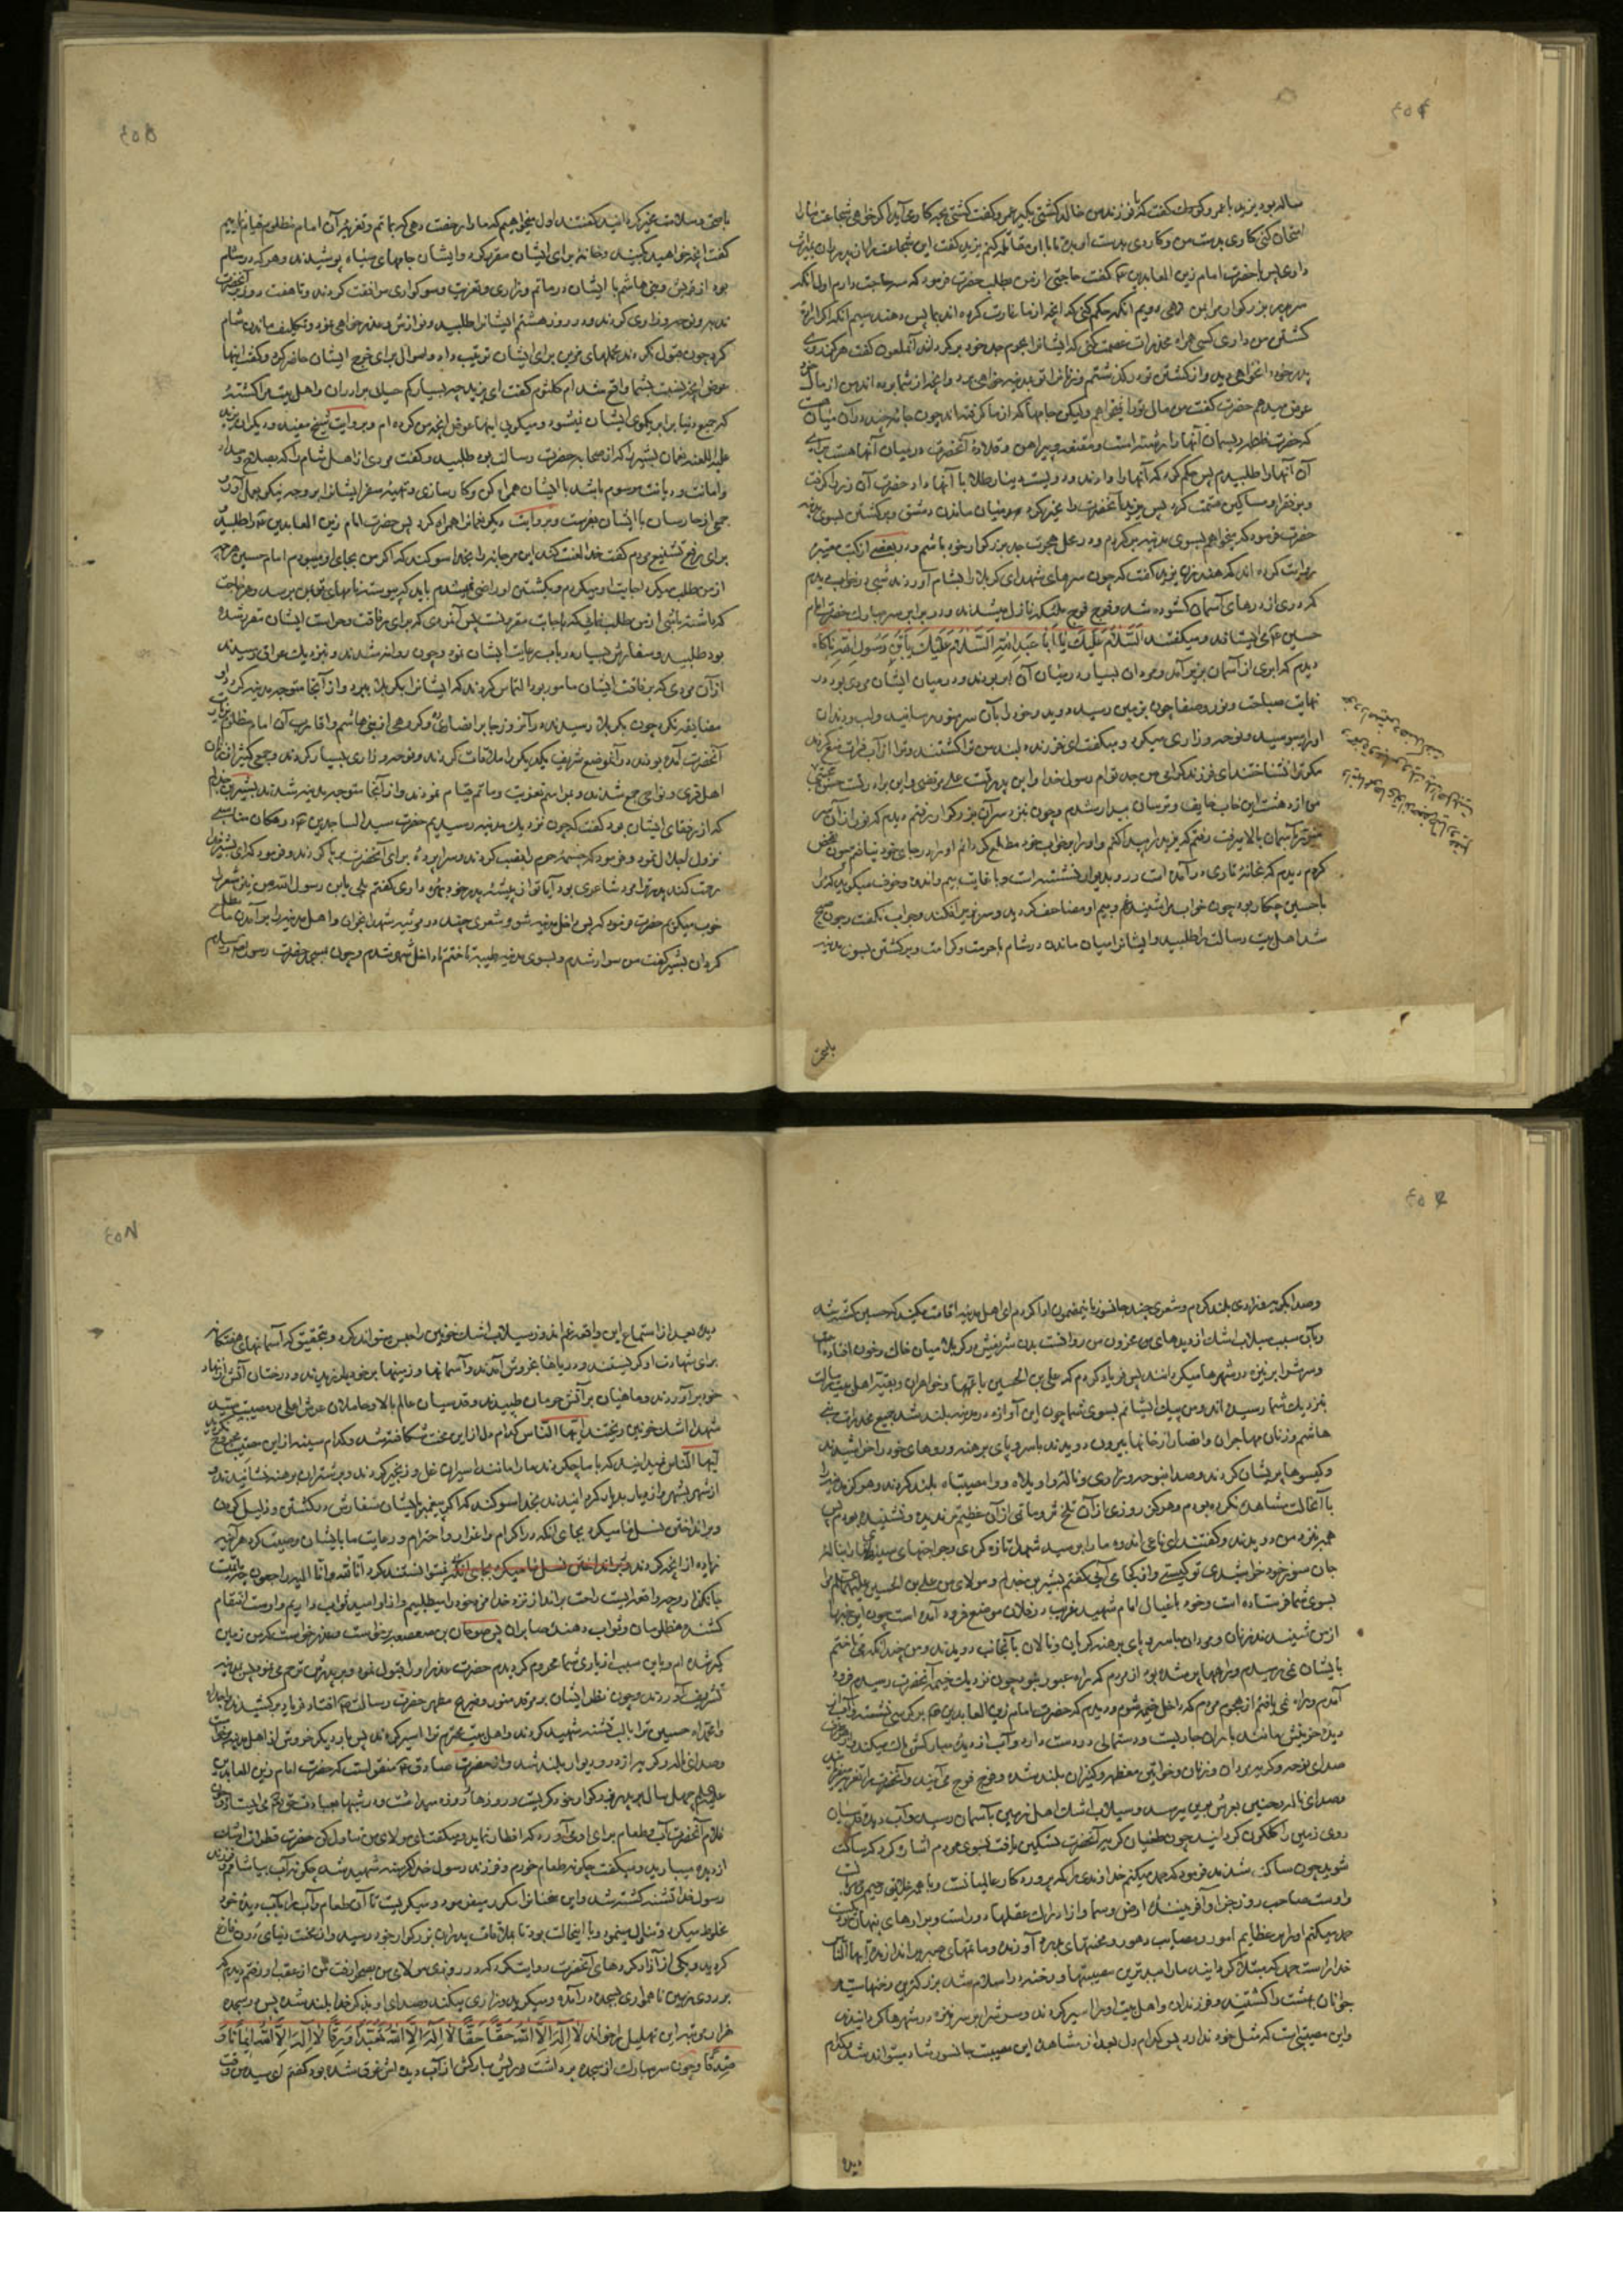 ساله بود یزید با عمرو کوچک گفت که با فرزند من خالد کشتی بگیر عمرو گفت کشتی بچه کار می‌آید اگر خواهی شجاعت ما را
امتحان کنی کاردی بدست من و کاردی بدست او بده تا با او مقاتله کنم یزید گفت این شجاعت را از پدران بمیراث
دارید پس با حضرت امام زین العابدین گفت حاجتی از من بطلب حضرت فرمود که سه حاجت دارم اول آنکه
سر پدر بزرگوار مرا بمن دهی دویم آنکه حکم کنی که آنچه از ما غارت کرده‌اند بما پس دهند سیم آنکه اگر اراده
کشتن من داری کسی همراه مخدرات عصمت کنی که ایشانرا بحرم جد خود برگرداند آنملعون گفت هرگز روی
پدر خود را نخواهی دید و از کشتن تو درگذشتم و زنانرا تو بمدینه خواهی برد و آنچه از شما برده‌اند من از مال خود
عوض میدهم حضرت گفت من مال ترا نمیخواهم ولیکن جامها که از ما گرفته‌اند چون جامه چند در آن میان هست
که حضرت فاطمه ریسمان آنها را رشته است و مقنعه و پیراهن و قلاده آنحضرت در میان آنها هست برای
آن آنها را طلبیدم پس حکم کرد که آنها را دادند و دویست دینار طلا با آنها داد حضرت آن زر را گرفت
و بر فقرا و مساکین قسمت کرد پس یزید آنحضرت را مخیر کرد میان ماندن دمشق و برگشتن بسوی مدینه
حضرت فرمود که میخواهم بسوی مدینه برگردم و در محل هجرت جد بزرگوار خود باشم و در بعضی از کتب معتبره
روایت کرده‌اند که هند زن یزید گفت که چون سرهای شهدای کربلا را بشام آوردند شبی در خواب دیدم
که دری از درهای آسمان گشوده شد و فوج فوج ملئکه نازل میشدند و در برابر سر مبارک حضرت امام
حسین می‌ایستادند و میگفتند السلام علیک یا ابا عبد الله السلام علیک یا بن رسول الله ناکاه
دیدم که ابری از آسمان بزیر آمد و مردان بسیار در میان آن ابر بودند و در میان ایشان مردی بود در
نهایت صباحت و نور و صفا چون بزمین رسید دوید و خود را بآن سر منور رسانید و لب و دندان
او را میبوسید و نوحه و زاری میکرد و میگفت ای فرزند دلبند من ترا کشتند و ترا از آب فرات منع کردند
مگر ترا نشناختند ای فرزند گرامی من جد توام رسول خدا و این پدر تست علی مرتضی و این برادر تست حسن مجتبی
من از دهشت این خواب خایف و ترسان بیدار شدم و چون بنزد سر آن بزرگوار رفتم دیدم که نور از آن سر
منور بآسمان بالا میرفت رفتم که یزید را بیدار کنم و او را بر خواب خود مطلع گردانم او را در جای خود نیافتم چون تفحص
کردم دیدم که خانه تاری در آمده است و رو بدیوار نشسته است و با غایت بیم و اندوه و خوف میگوید که مرا
با حسین چکار بود چون خواب مرا شنید غم و بیم او مضاعف گردید و سر بزیر افکند و جواب نگفت و چون صبح
شد اهل بیت رسالت را طلبید و ایشانرا میان ماندن در شام با حرمت و کرامت و برگشتن بسوی مدینه
باصحت
با صحت و سلامت مخیر گردانید گفتند اول میخواهیم که ما را رخصت دهی که بماتم و تعزیه آن امام مظلوم قیام نماییم
گفت آنچه خواهید بکنید و خانه برای ایشان مقرر کرد و ایشان جامهای سیاه پوشیدند و هر که در شام
بود از قریش و بنی هاشم با ایشان در ماتم و زاری و تعزیت و سوگواری موافقت کردند و تا هفت روز بر آنحضرت
ندبه و نوحه و زاری کردند و در روز هشتم ایشانرا طلبید و نوازش و عذر خواهی نمود و تکلیف ماندن شام
کرد چون قبول نکردند محملهای مزین برای ایشان ترتیب داد و اموال برای خرج ایشان حاضر کرد و گفت اینها
عوض آنچه نسبت بشما واقع شد ام کلثوم گفت ای یزید چه بسیار کم حیایی برادران و اهل بیت مرا کشته‌ٔ
که جمیع دنیا برابر یکموی ایشان نیشود و میگویی اینها عوض آنچه من کرده‌ام و بروایت شیخ مفید و دیگران یزید
علیه اللعنه نعمان بشیر را که از صحابه حضرت رسالت بود طلبید و گفت مردی از اهل شام را که بصلاح و سداد
و امانت و دیانت موسوم باشد با ایشان همراه کن و کارسازی و تهیه سفر ایشانرا بر وجه نیکو بعمل آور و
جمعی از حارسان با ایشان بفرست و بروایت دیگر نعمانرا همراه کرد پس حضرت امام زین العابدین را طلبید
برای رفع تشنیع مردم گفت خدا لعنت کند ابن مرجانه را بخدا سوگند که اگر من بجای او میبودم امام حسین هر چه
از من طلب میکرد اجابت او میکردم و بکشتن او راضی نمیشدم باید که پیوسته نامهای تو بمن برسد و هر حاجت
که داشته باشی از من طلب نمایی که باجابت مقرونست پس آنمردی که برای رفاقت و حراست ایشان مقرر شده
بود طلبید و سفارش بسیار در باب رعایت ایشان نمود و چون روانه شدند و بنزدیک عراق رسیدند
از آن مردی که برفاقت ایشان مامور بود التماس کردند که ایشانرا بکربلا ببرد و از آنجا متوجه مدینه گردد او
مضایقه نکرد چون بکربلا رسیدند در آنروز جابر انصاری و گروهی از بنی هاشم و اقارب آن امام مظلوم بزیارت
آنحضرت آمده بودند در آنموضع شریف یکدیگر را ملاقات کردند و نوحه و زاری بسیار کردند و جمعی کثیر از زنان
اهل قری و نواحی جمع شدند و مراسم تعزیت و ماتم قیام نمودند و از آنجا متوجه مدینه شدند بشیر بن جذلم
که از رفقای ایشان بود گفت که چون نزدیک مدینه رسیدیم حضرت سید الساجدین در مکان مناسبی
نزول اجلال نمود و فرمود که خیمه حرم را نصب کردند و سراپرده برای آنحضرت برپا کردند و فرمود که ای بشیر خدا
رحمت کند پدر ترا مرد شاعری بود آیا تو از پیشه پدر خود بهره داری گفتم بلی یابن رسول الله من نیز شعر را
خوب میگویم حضرت فرمود که پس داخل مدینه شو و شعری چند در مرثیه شهدا بخوان و اهل مدینه را بر آمدن ما مطلع
گردان بشیر گفت من سوار شدم و بسوی مدینه طیبه تاختم تا داخل شهر شدم و چون بمسجد حضرت رسول رسیدم
وصدا بگریه و زاری بلند کردم و شعری چند جانسوز باینمضمون ادا کردم ای اهل مدینه اقامت مکنید که حسین کشته شد
و بآن سبب سیلاب اشک از دیدهای من محزون من روانست بدن شریفش در کربلا میان خاک و خون افتاده است
و سرش را بر نیزه در شهرها میگردانند پس فریاد کردم که علی بن الحسین با عمها و خواهران و بقیه اهل بیت رسالت
بنزدیک شما رسیده‌اند و من پیک ایشانم بسوی شما چون این آوازه در مدینه بلند شد جمیع مخدرات بنی
هاشم و زنان مهاجران و انصار از خانها بیرون دویدند با سر و پای برهنه و روهای خود را خراشیدند
و گیسوها پریشان کردند و صدا بنوحه و زاری و ناله واویلاه و وامصیبتاه بلند کردند و هرگز مدینه را
با آنحالت مشاهده نکرده بودم و هرگز روزی از آن تلخ‌تر و ماتمی از آن عظیم‌تر ندیده و نشنیده بودم پس
همه بنزد من دویدند و گفتند ای ناعی اندوه ما را بر سید شهدا تازه کردی و جراحتهای سینهٔ ما را بناله
جان سوز خود خراشیدی تو کیستی و از کجا می‌آیی گفتم بشیر بن جذلم و مولای من علی بن الحسین علیهما السلام مرا
بسوی شما فرستاده است و خود با عیال امام شهید غریب در فلان موضع فرود آمده است چون این خبر را
از من شنیدند زنان و مردان با سر و پای برهنه گریان و نالان بآنجانب دویدند و من چندانکه می‌تاختم
بایشان نمیرسیدم و راهها پر شده بود از مردم که راه عبور نبود چون نزدیک خیمه آنحضرت رسیدم فرود
آمدم و راه نمی‌یافتم از هجوم مردم که داخل خیمه شوم و دیدم که حضرت امام زین العابدین بر کرسی نشسته و آب از
دیده حق‌بینش مانند باران جاریست و دستمالی در دست دارد و آب از دیده مبارکش پاک میکند و از هر طرف
صدای نوحه و گریه مردان و زنان و خواتین معظمه و کنیزان بلند شده و فوج فوج می‌آیند و آنحضرت را تعزیه میفرمایند
و صدای ناله و حنین بعرش برین میرسد و سیلاب اشک اهل زمین بآسمان رسید و آب دیده قدسیان
روی زمین را گلگون گردانید چون طغیان گریه آنحضرت تسکین یافت بسوی مردم اشاره کرد که ساکت
شوید چون ساکت شدند فرمود که حمد میکنم خداوندی را که پروردگار عالمیانست و با همه خلایق رحیم و مهربان
و اوست صاحب روز جزا و آفرینندهٔ ارض و سما و از ادراک عقلها دور است و برازهای پنهان مطلع
حمد میکنم او را بر عظایم امور و مصایب دهور و محنتهای بدرد آورنده و ماتمهای صبر براندازنده ایها الناس
خدا را است حمد که مبتلا گردانید ما را بمصیبتهای بزرگ و رخنه در اسلام شد بزرگترین رخنها سید
جوانان بهشت را کشتند و فرزندان و اهل بیت او را اسیر کردند و سرش را بر سر نیزه در شهرها گردانیدند
و این مصیبتی است که مثل خود ندارد پس کدام دل بعد از مشاهده این مصیبت جانسوز شاد میتواند شد و کدام
دیده
دیده بعد از استماع این واقعه غم اندوز سیلاب اشک خونین را حبس میتواند کرد و بتحقیق که آسمانهای هفتگانه
برای شهادت او گریستند و دریاها بخروش آمدند و آسمانها و زمینها بر خود بلرزیدند و درختان آتش از نهاد
خود برآوردند و ماهیان بر آتش حرمان طپیدند و قدسیان عالم بالا و حاملان عرش اعلی در مصیبت سید
شهدا اشک خونین ریختند ایها الناس کدام دل از این محنت شکافته نشد و کدام سینه از این مصیبت مجروح نگردید
ایها الناس نمیدانید که با ما چکردند ما را مانند اسیران غل و زنجیر کردند و بر شتران برهنه نشانیدند و
از شهر بشهر و از دیار بدیار گردانیدند بخدا سوگند که اگر پیغمبر بایشان سفارش در کشتن و ذلیل کردن
و برانداختن نسل ما میکرد بجای آنکه در اکرام و اعزاز و احترام و رعایت ما بایشان وصیت کرد هر آینه
زیاده از آنچه کردند نمیتوانستند کرد انا لله و انا الیه راجعون
و از او امید ثواب داریم و اوست انتقام
کشنده مظلومان و ثواب دهنده صابران پس صوحان بن صعصعه برخاست و عذر خواست که من زمین
گیر شده‌ام و باین سبب از یاری شما محروم گردیدم حضرت عذر او را قبول نمود و بر پدرش ترحم نمود پس بمدینه
تشریف آوردند و چون نظر ایشان بر مرقد منور و ضریح مطهر حضرت رسالت افتاد فریاد برکشیدند وا جداه
وا محمداه حسین ترا با لب تشنه شهید کردند و اهل بیت محترم ترا اسیر کردند پس بار دیگر خروش از اهل مدینه برخاست
و صدای ناله و گریه از در و دیوار بلند شد و از حضرت صادق منقولست که حضرت امام زین العابدین
علیه السلام چهل سال بر پدر بزرگوار خود گریست و روزها روزه میداشت و در شبها بعبادت حق می‌ایستاد و
غلام آنحضرت آب و طعام برای او می‌آورد که افطار نماید و میگفت ای مولای من تناول کن حضرت قطرات اشک
از دیده میبارید و میگفت چگونه طعام خورم و فرزند رسول خدا گرسنه شهید شد چگونه آب بیاشامم و فرزند
رسول خدا تشنه کشته شد و این سخنانرا مکرر میفرمود و میگریست تا آن طعام و آب را بآب دیده خود
مخلوط میکرد و تناول مینمود و با این حالت بود تا بملاقات پدران بزرگوار خود رسید و از محنت دنیای دون فارغ
گردید و یکی از آزاد کردهای آنحضرت روایت کرد که در روزی مولای من بصحرا رفت من از عقب او رفتم دیدم که
بر روی زمین ناهمواری بسجده درآمده و میگرید و زاری میکند و صدای او بذکر خدا بلند شده پس در سجده
هزار مرتبه این تهلیل را خواند لا اله الا الله حقا حقا لا اله الا الله تعبدا و رقا لا اله الا الله ایمانا و
صدقا و چون سر مبارک از سجده برداشت و ریش مبارکش از آب دیده‌اش غرق شده بود گفتم ای سید من وقت